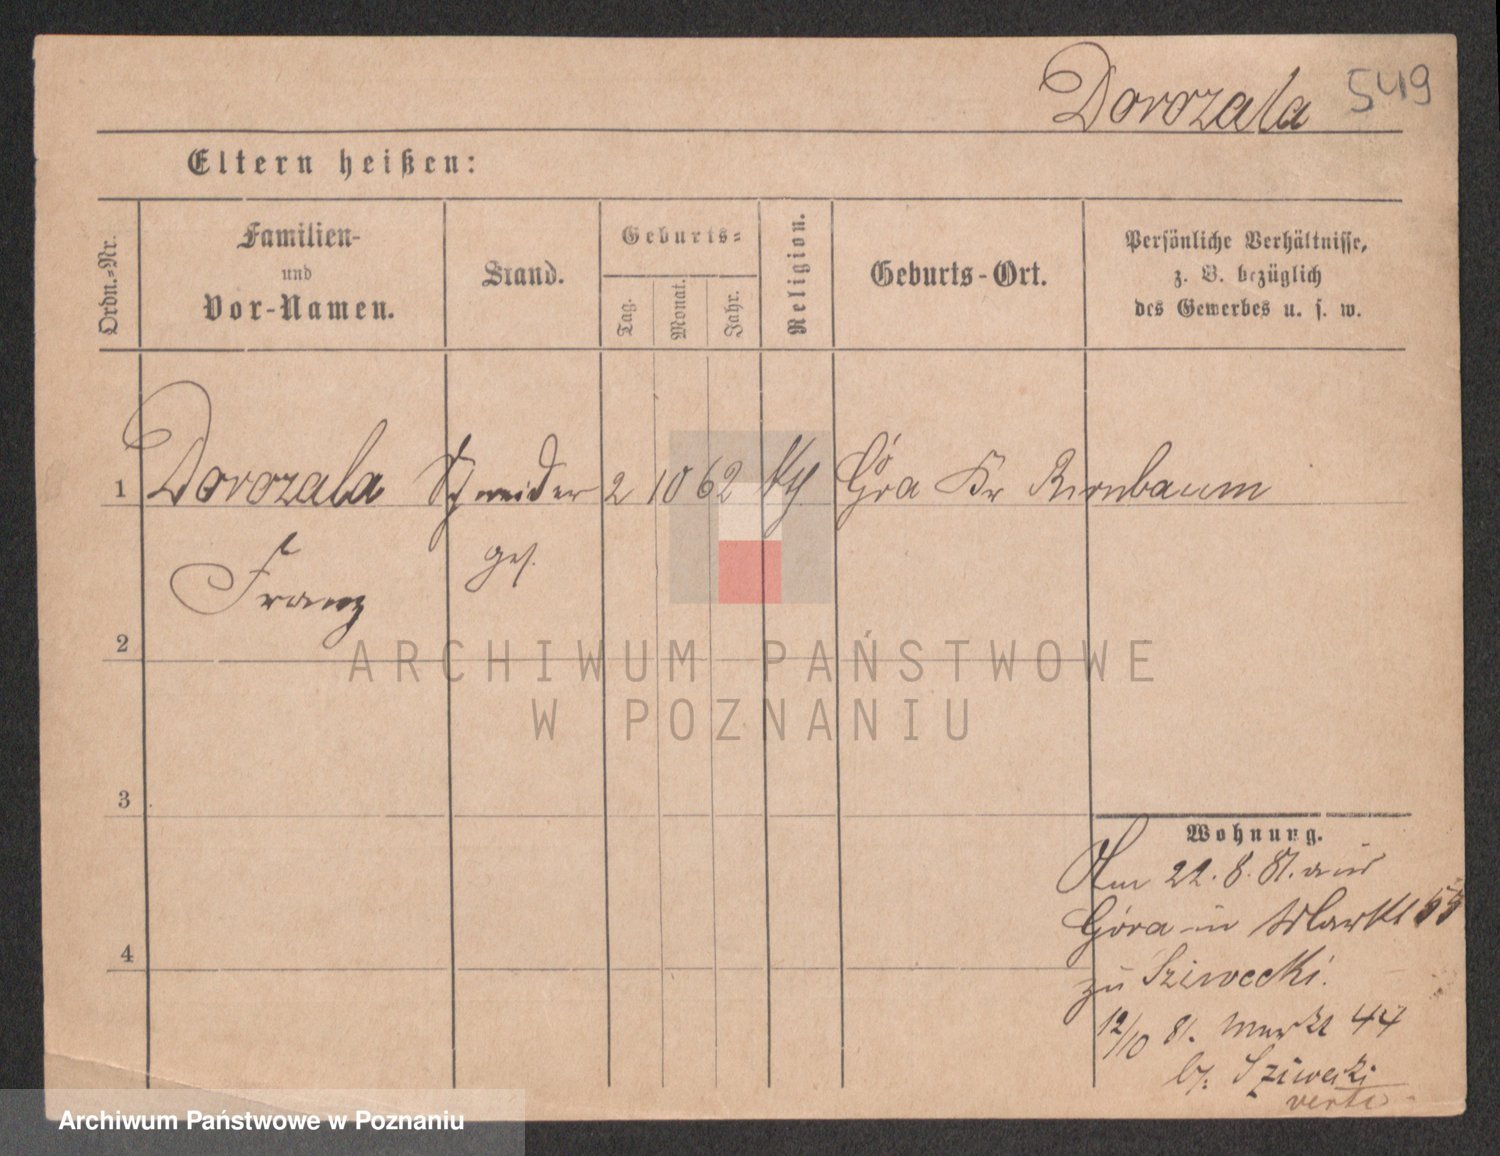 Dorozala 549
Eltern heißen:
Ordn.-Nr.
Familien-
und
Vor-Namen.
Stand.
Geburts-
Tag.
Monat.
Jahr.
Religion.
Geburts-Ort.
Persönliche Verhältnisse,
z. B. bezüglich
des Gewerbes u. s. w.
1 Dorozala Schneider 2 10 62 Góra Kr Birnbaum
Franz ges.
2
ARCHIWUM PAŃSTWOWE
W POZNANIU
3
Wohnung.
Am 22. 8. 81. aus
Góra in Markt 55
4
zu Sziwecki.
12/10 81. Markt 44
b/. Sziwecki
verte
Archiwum Państwowe w Poznaniu